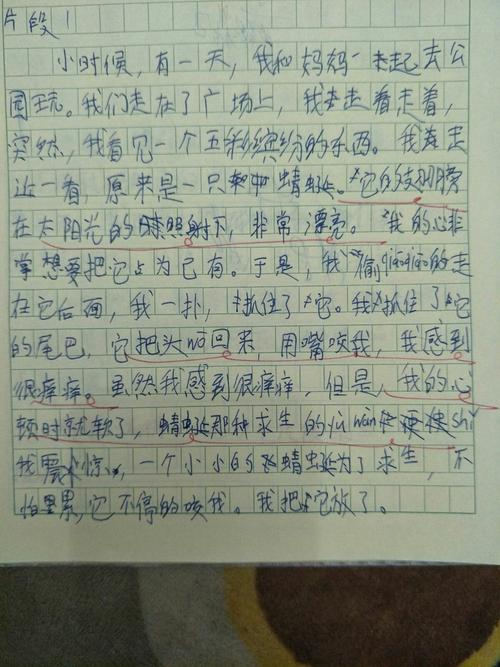 片段1
小时候，有一天，我和妈妈一起去公
园玩。我们走在了广场上，我走着走着，
突然，我看见一个五彩缤纷的东西。我走
近一看，原来是一只蜻蜓。它的翅膀
在太阳光的照射下，非常漂亮。我的心非
常想要把它占为己有。于是，我偷qiāoqiāo的走
在它后面，我一扑，抓住了它。我抓住了它
的尾巴，它把头niǔ回来，用嘴咬我，我感到
很痒痒。虽然我感到很痒痒，但是，我的心
顿时就软了，蜻蜓那种求生的yù wàng使
我震惊，一个小小的蜻蜓为了求生，不
怕累，它不停的咬我。我把它放了。